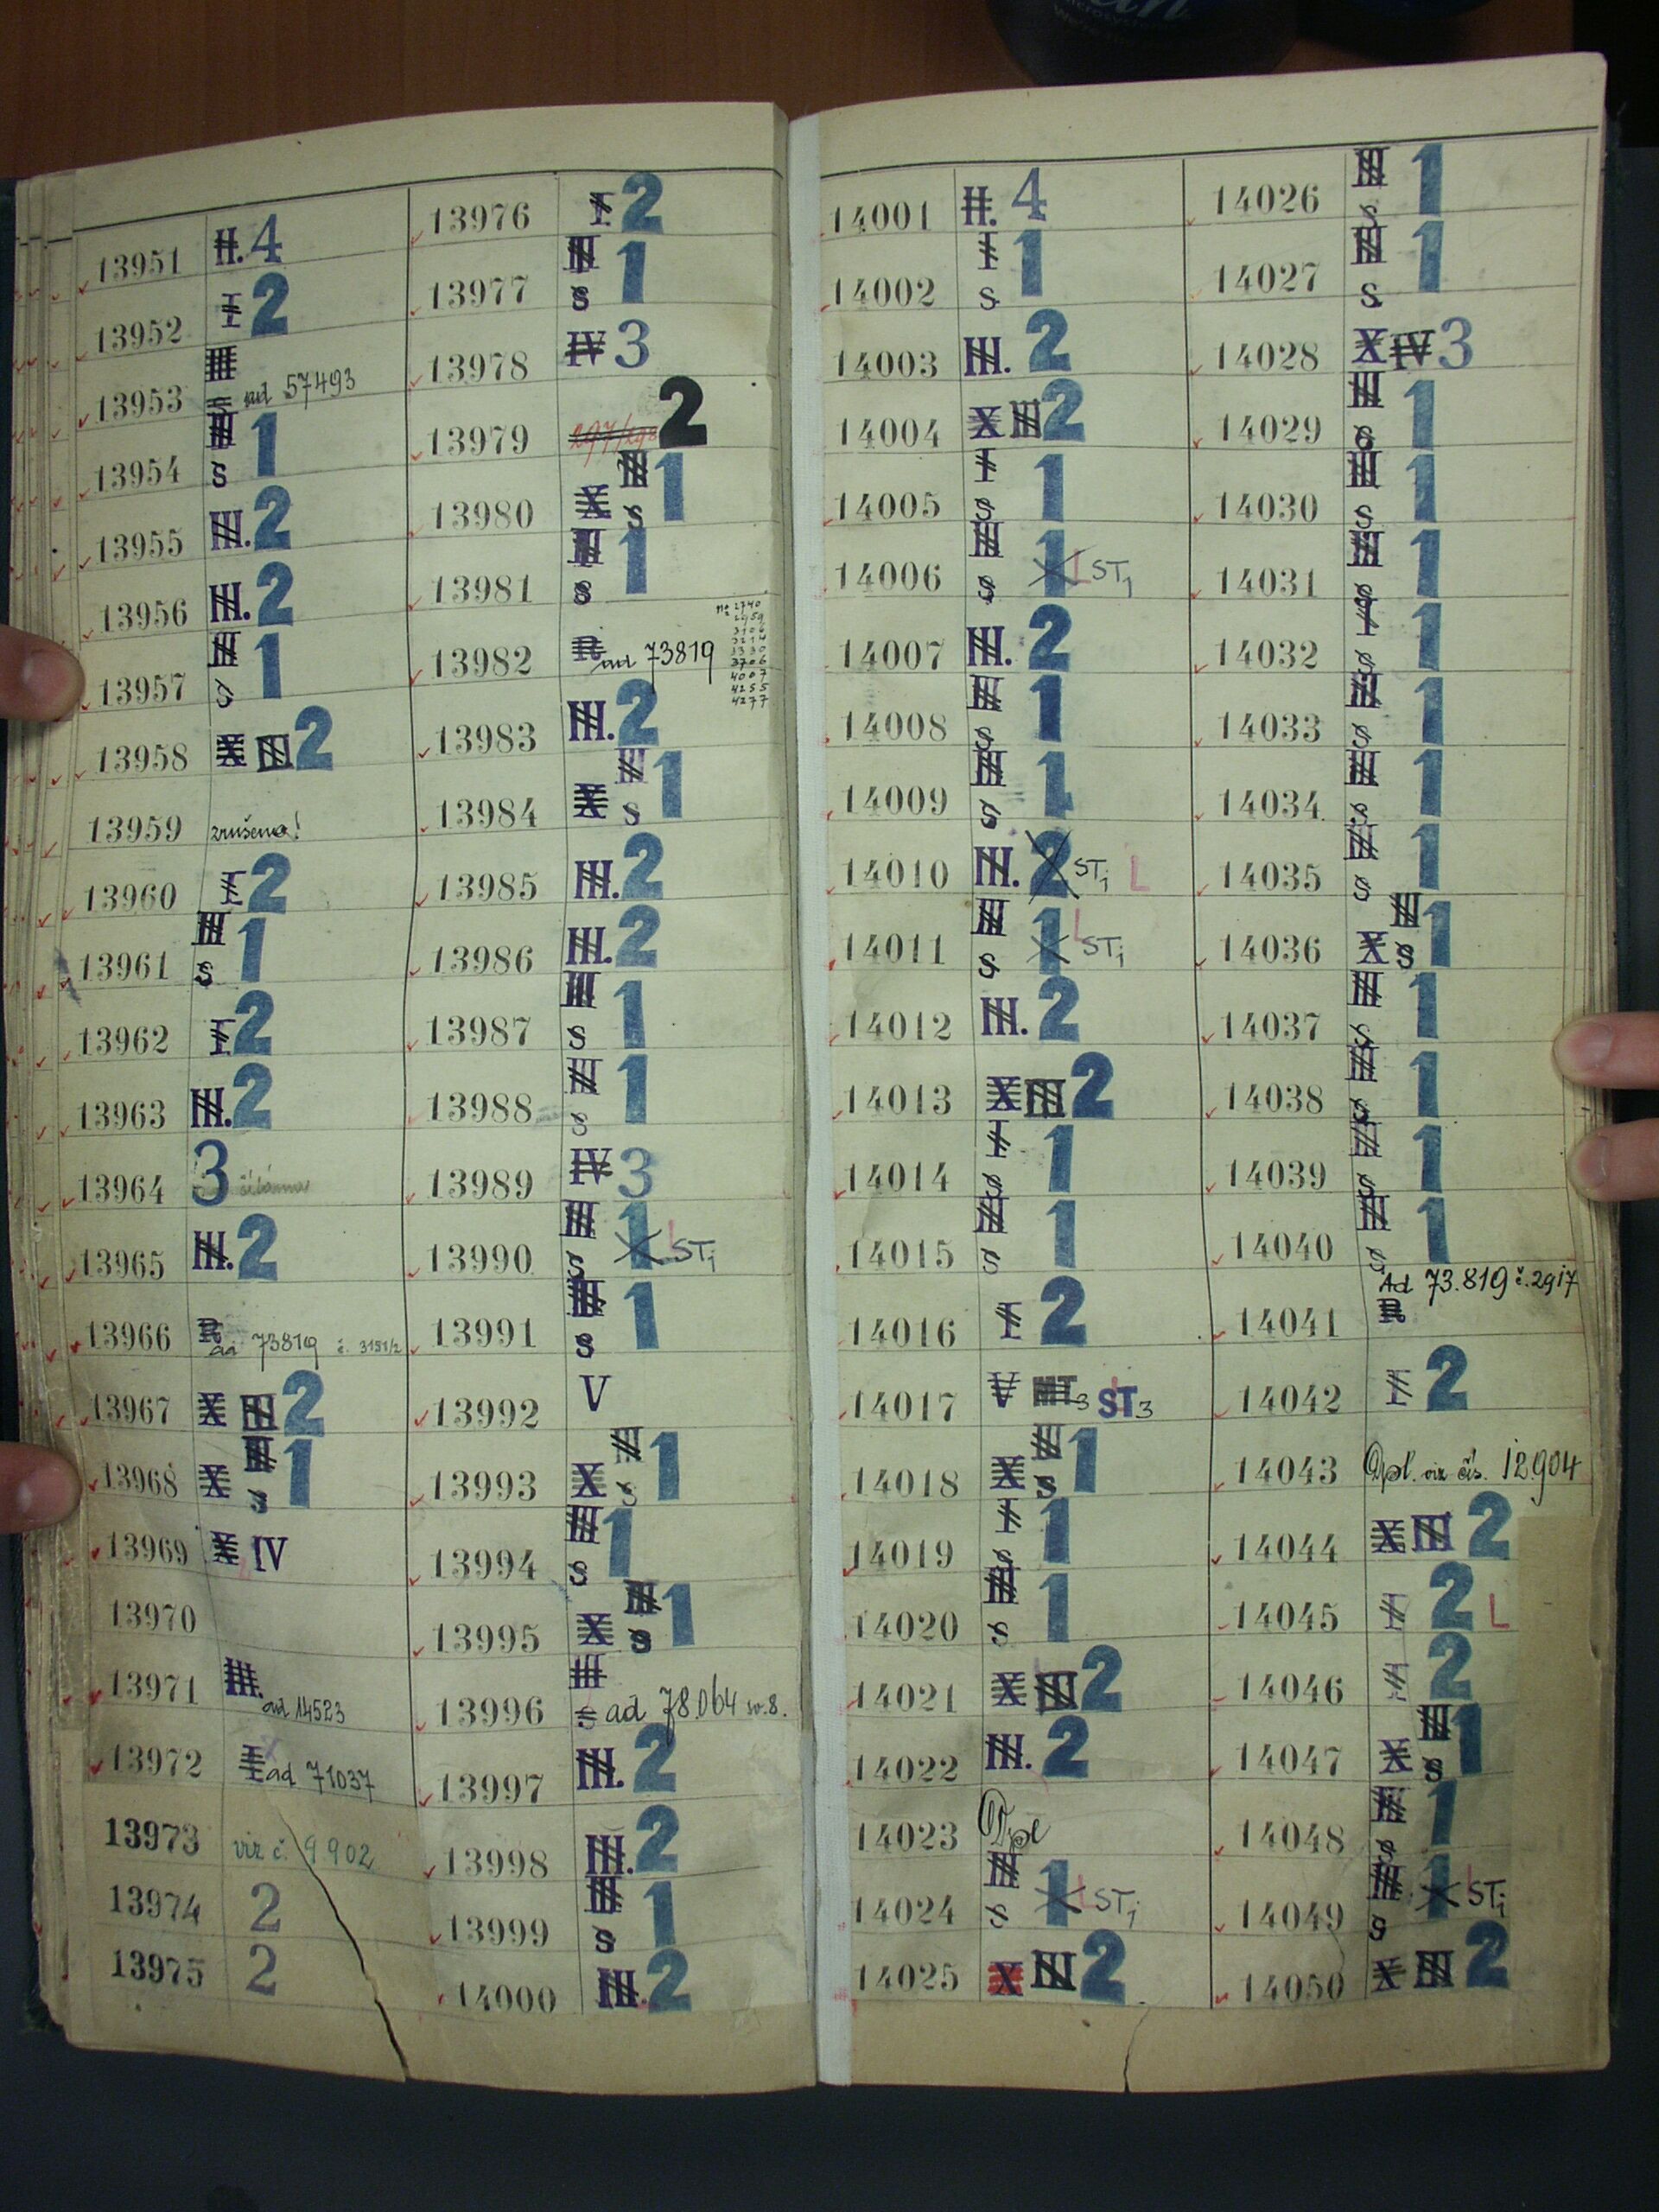 13951 H. 4
13952 I 2
13953 III s ad 57493
13954 III s 1
13955 III. 2
13956 III. 2
13957 III s 1
13958 X III 2
13959 zrušeno!
13960 I 2
13961 III s 1
13962 I 2
13963 III. 2
13964 3
13965 III. 2
13966 R ad 73819 č. 3151/2
13967 X III 2
13968 X III s 1
13969 X IV
13970
13971 III. ad 14523
13972 I ad 71037
13973 viz č. 9902
13974 2
13975 2
13976 I 2
13977 III s 1
13978 IV 3
13979 297/298 2
13980 X III s 1
13981 III s 1
13982 R ad 73819
No 2740
2959
3106
3214
3330
3706
4007
4255
4277
13983 III. 2
13984 X III s 1
13985 III. 2
13986 III. 2
13987 III s 1
13988 III s 1
13989 IV 3
13990 III s 1 L ST1
13991 III s 1
13992 V
13993 X III s 1
13994 III s 1
13995 X III s 1
13996 III s ad 78.064 sv. 8.
13997 III. 2
13998 III. 2
13999 III s 1
14000 III. 2
14001 H. 4
14002 I s 1
14003 III. 2
14004 X III 2
14005 I s 1
14006 III s 1 L ST1
14007 III. 2
14008 III s 1
14009 III s 1
14010 III. 2 ST1 L
14011 III s 1 L ST1
14012 III. 2
14013 X III 2
14014 I s 1
14015 III s 1
14016 I 2
14017 V MT3 ST3
14018 X III s 1
14019 I s 1
14020 III s 1
14021 X III 2
14022 III. 2
14023 Dpl
14024 III s 1 L ST1
14025 X III 2
14026 III s 1
14027 III s 1
14028 X IV 3
14029 III s 1
14030 III s 1
14031 III s 1
14032 I s 1
14033 III s 1
14034 III s 1
14035 III s 1
14036 X III s 1
14037 III s 1
14038 III s 1
14039 III s 1
14040 III s 1
14041 R Ad 73.819 č. 2917
14042 I 2
14043 Dpl. viz čís. 12904
14044 X III 2
14045 I 2 L
14046 I 2
14047 X III s 1
14048 III s 1
14049 III s 1 L ST1
14050 X III 2